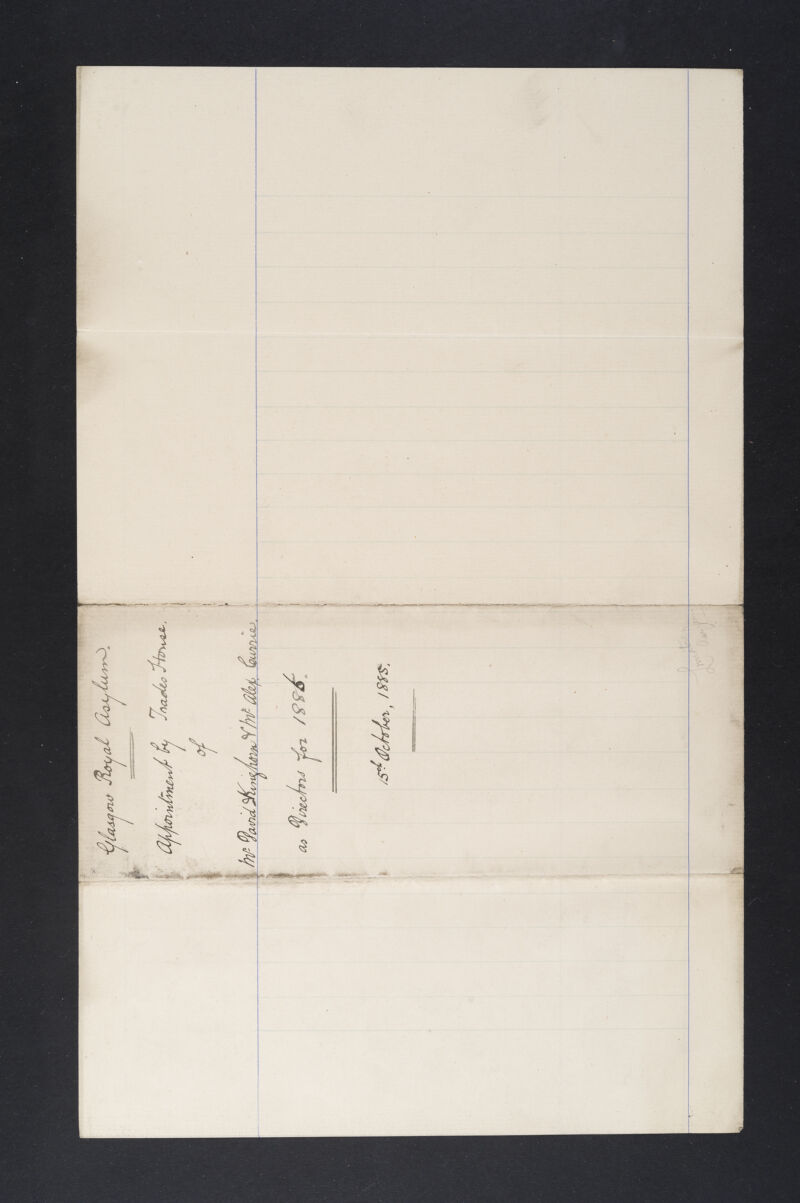 Glasgow Royal Asylum.
Appointment by Trades House.
of
Mr David Kinghorn & Mr Alex Currie.
as Directors for 1886.
15th October, 1885.